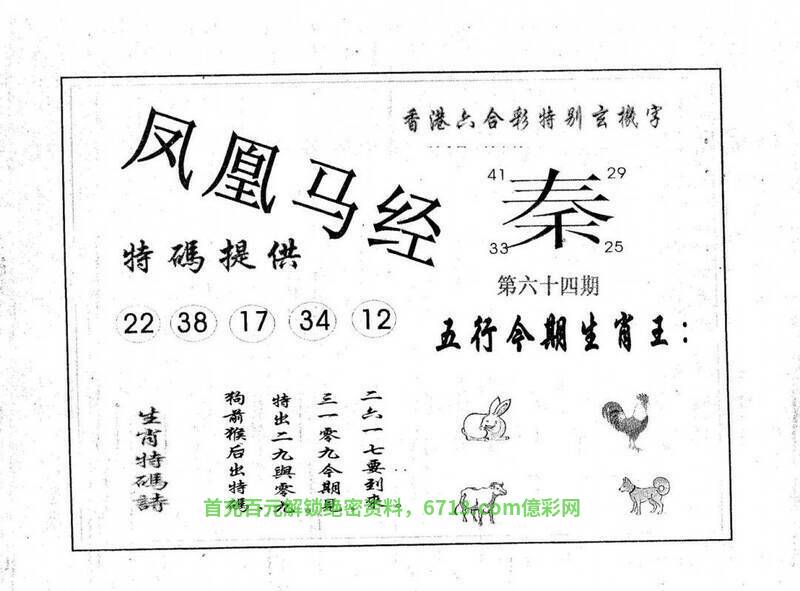 香港六合彩特别玄機字
凤凰马经
41 29
秦
33 25
特碼提供
第六十四期
22 38 17 34 12
五行今期生肖王：
二六一七要到來
三一零九今期見
特出二九與零九
狗前猴后出特碼
生肖特碼詩
首充百元解锁绝密资料，億彩网